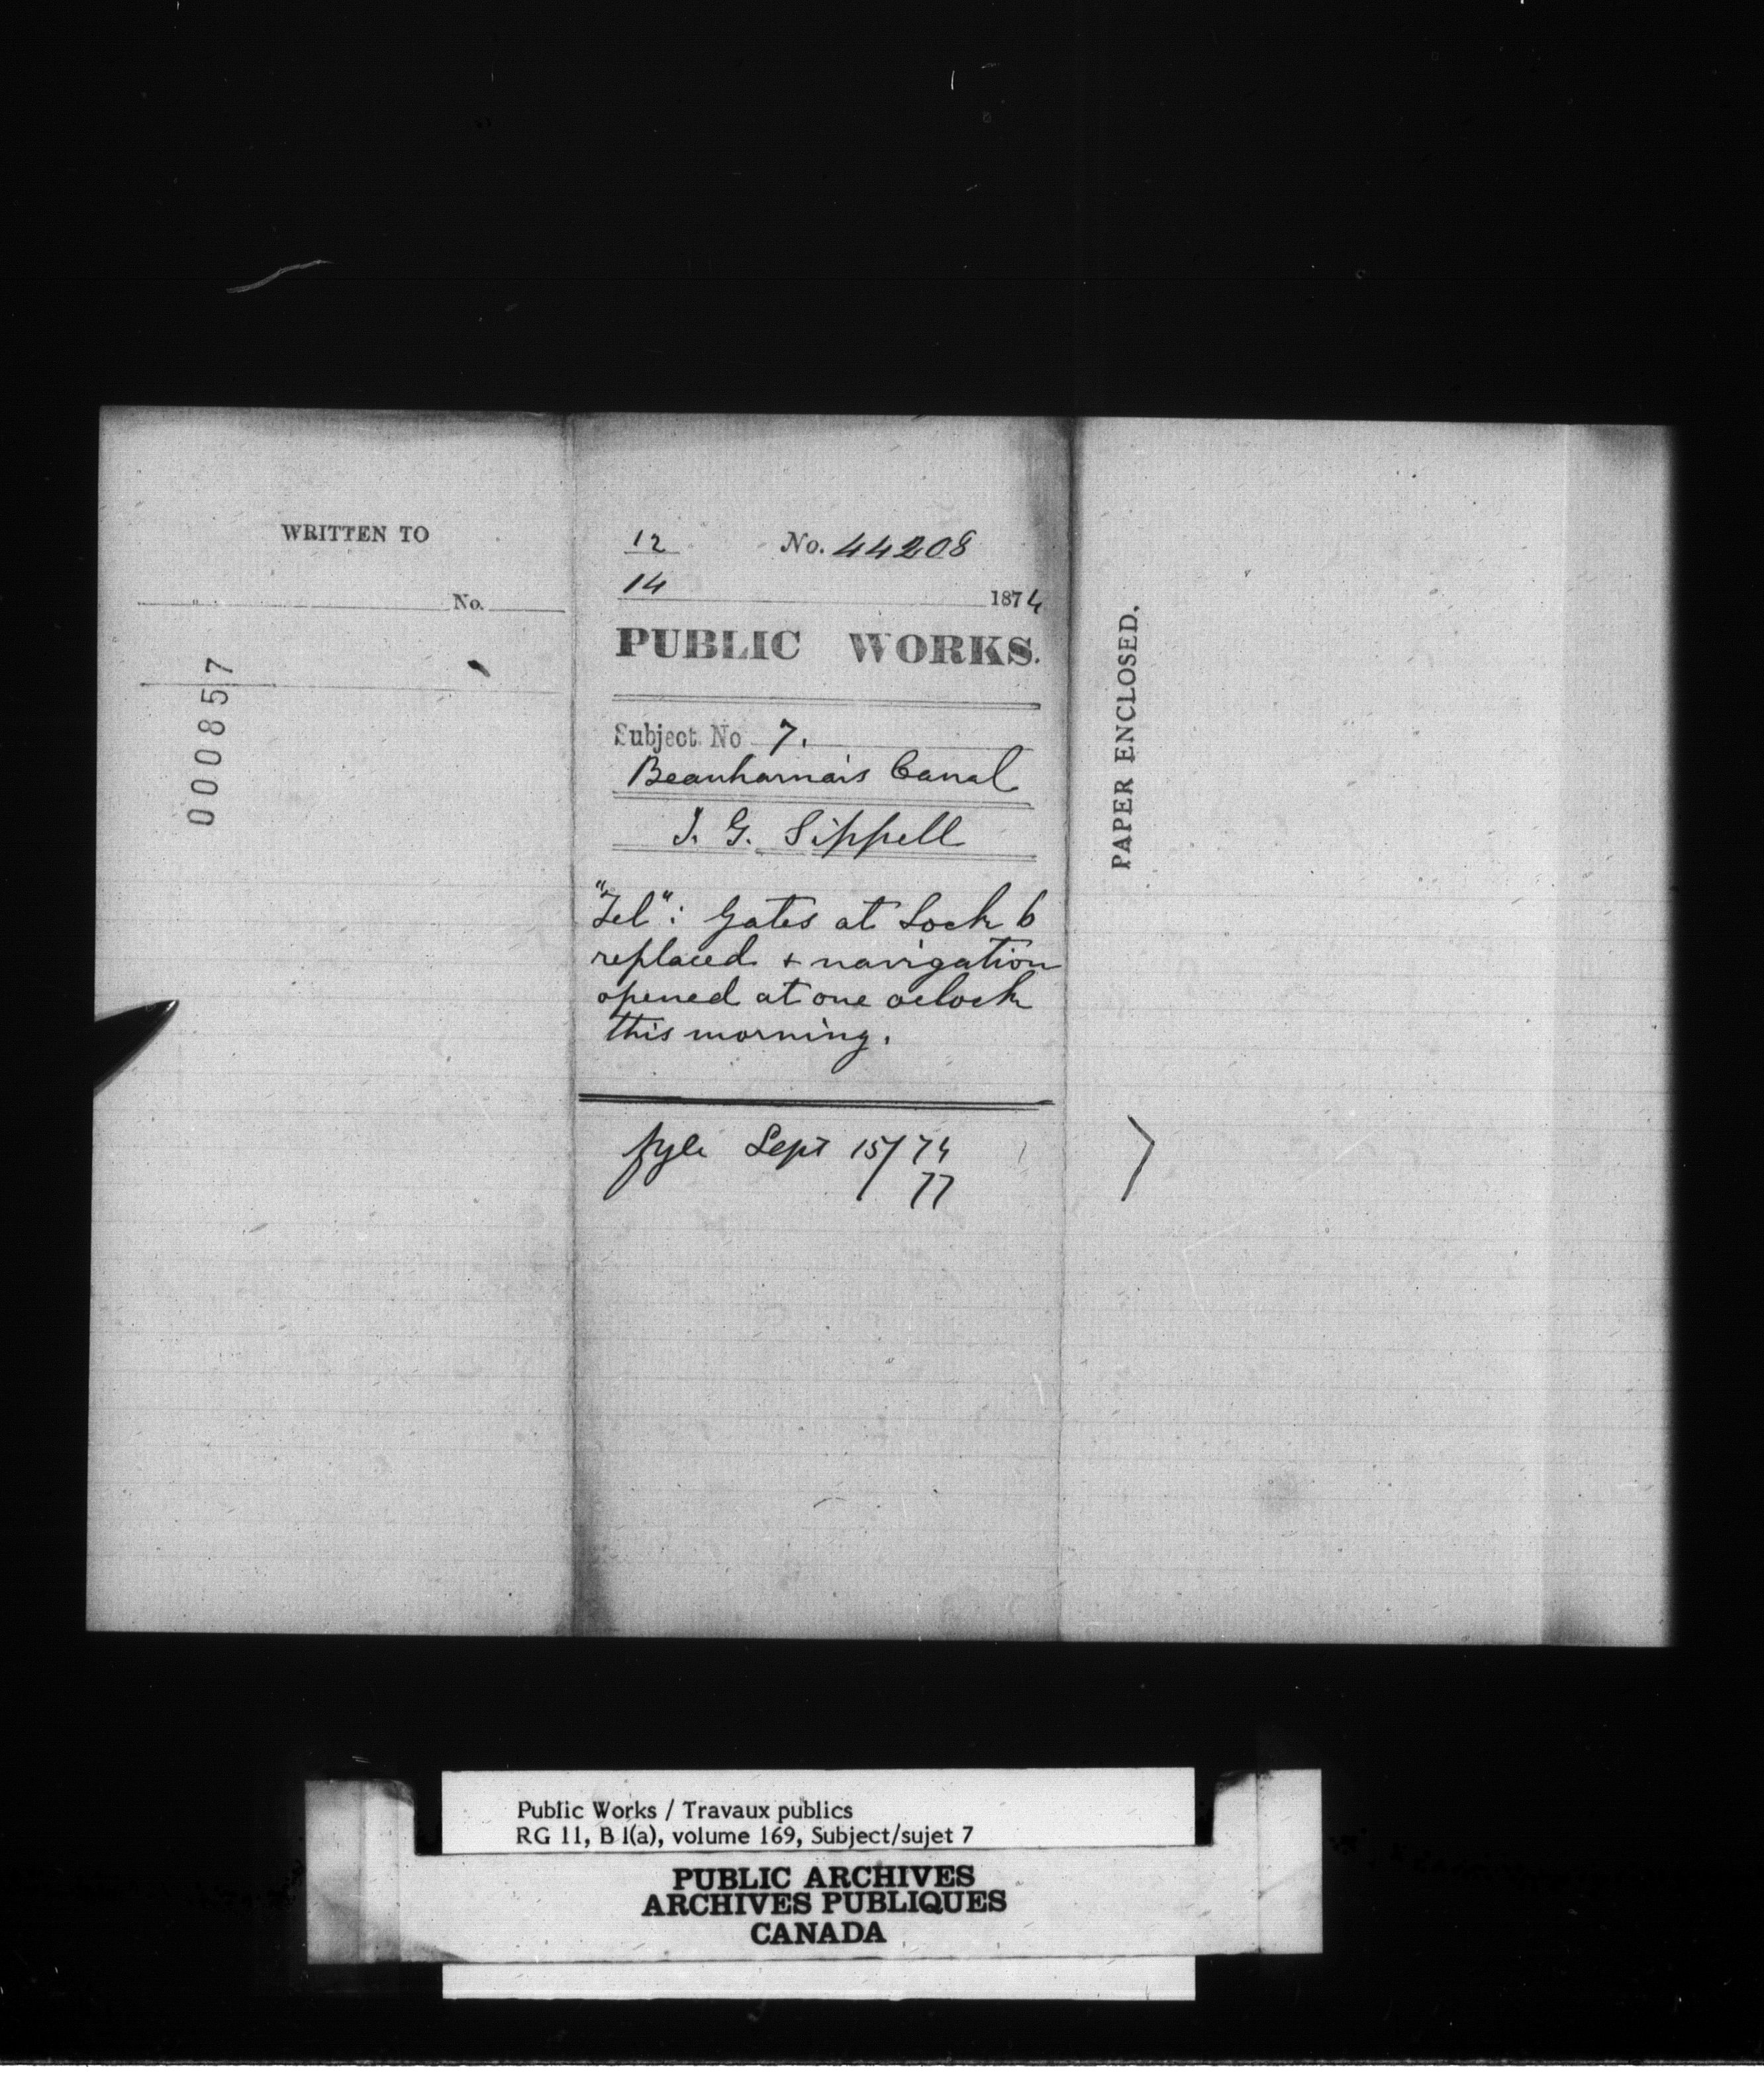 WRITTEN TO
No.
000857
12
14
No. 44208
1874
PUBLIC WORKS.
Subject No 7.
Beauharnais Canal
J. G. Sippell
"Tel": Gates at Lock 6
replaced + navigation
opened at one oclock
this morning.
fyle Sept 15/74
77
PAPER ENCLOSED.
Public Works / Travaux publics
RG 11, B 1(a), volume 169, Subject/sujet 7
PUBLIC ARCHIVES
ARCHIVES PUBLIQUES
CANADA